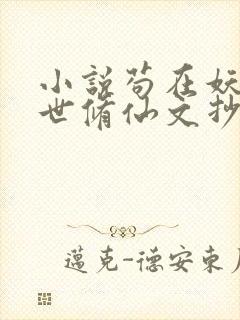 小説苟在妖
世脩仙文抄
邁克-德安東尼